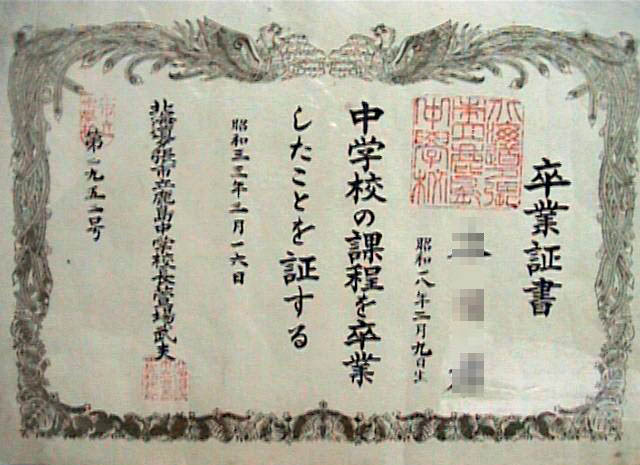 卒業証書
昭和一八年二月九日生
中学校の課程を卒業
したことを証する
昭和三三年三月一六日
北海道夕張市立鹿島中学校長
第一九五一号